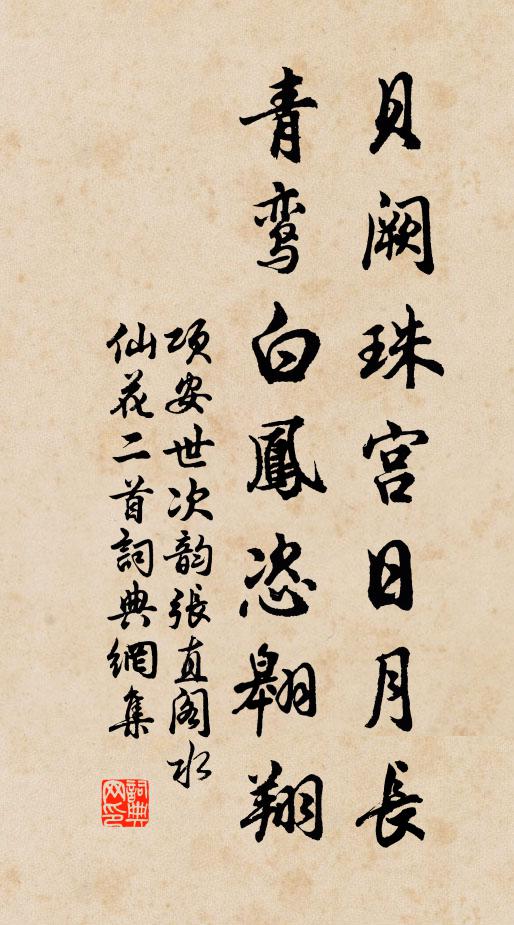 贝阙珠宫日月長
青鸾白鳳恣翱翔
项安世次韵張直阁水
仙花二首詞典網集
詞典网印